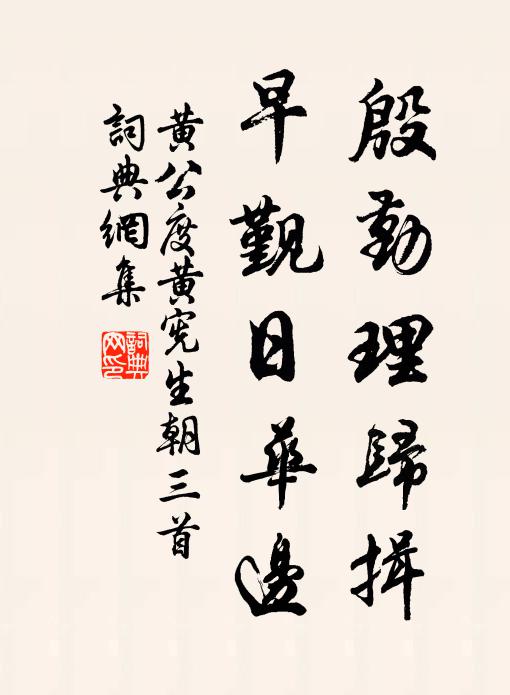 殷勤理歸揖
早觀日華邊
黃公度黃憲生朝三首
詞典網集
詞典網印